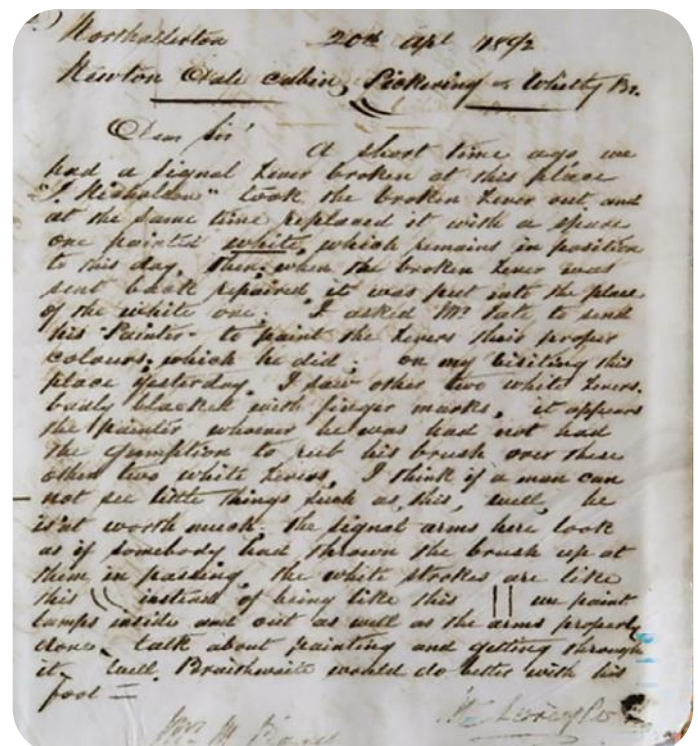 Northallerton 20th Apl 1892
Newton Dale cabin, Pickering & Whitby Br.
Dear Sir'
A short time ago we
had a signal Lever broken at this place
"J. Nicholson" took the broken Lever out and
at the same time replaced it with a spare
one painted white, which remains in position
to this day, then when the broken Lever was
sent back repaired it was put into the place
of the white one; I asked Mr Tate to send
his "Painter" to paint the Levers their proper
colours, which he did; on my visiting this
place yesterday, I saw other two white Levers.
badly blacked with finger marks, it appears
the painter whoever he was had not had
the gumption to rub his brush over these
other two white Levers, I think if a man can
not see little things such as this, well, he
isn't worth much. the signal arms here look
as if somebody had thrown the brush up at
them in passing, the white strokes are like
this (( instead of being like this || we paint
lamps inside and out as well as the arms properly
done, talk about painting and getting through
it. Well, Braithwaite would do better with his
foot =
Mr M